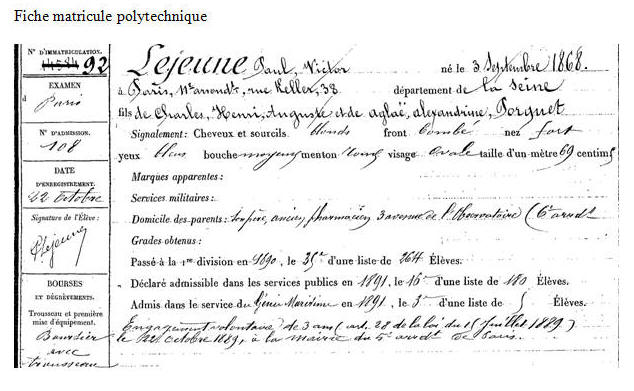 Fiche matricule polytechnique
N° D'IMMATRICULATION.
14584 92
EXAMEN
à Paris
N° D'ADMISSION.
108
DATE
D'ENREGISTREMENT.
22 octobre
Signature de l'Élève :
PLejeune
BOURSES
ET DÉGRÈVEMENTS.
Trousseau et première
mise d'équipement.
Boursier
avec
trousseau
Lejeune Paul, Victor né le 3 Septembre 1868.
à Paris, 11e arrondt, rue Keller, 38 département de la Seine
fils de Charles, Henri, Auguste et de Aglaë, alexandrine, Porquet
Signalement : Cheveux et sourcils blonds front bombé nez fort
yeux bleus bouche moyenne menton rond visage ovale taille d'un mètre 69 centim
Marques apparentes :
Services militaires :
Domicile des parents : son père, ancien pharmacien 3 avenue de l'Observatoire (6e arrdt
Grades obtenus :
Passé à la 1re division en 1890, le 35e d'une liste de 264 Élèves.
Déclaré admissible dans les services publics en 1891, le 16e d'une liste de 180 Élèves.
Admis dans le service du Génie Maritime en 1891, le 3e d'une liste de 5 Élèves.
Engagement volontaire de 3 ans (art. 28 de la loi du 15 Juillet 1889)
le 22 octobre 1889, à la mairie du 5e arrdt de Paris.